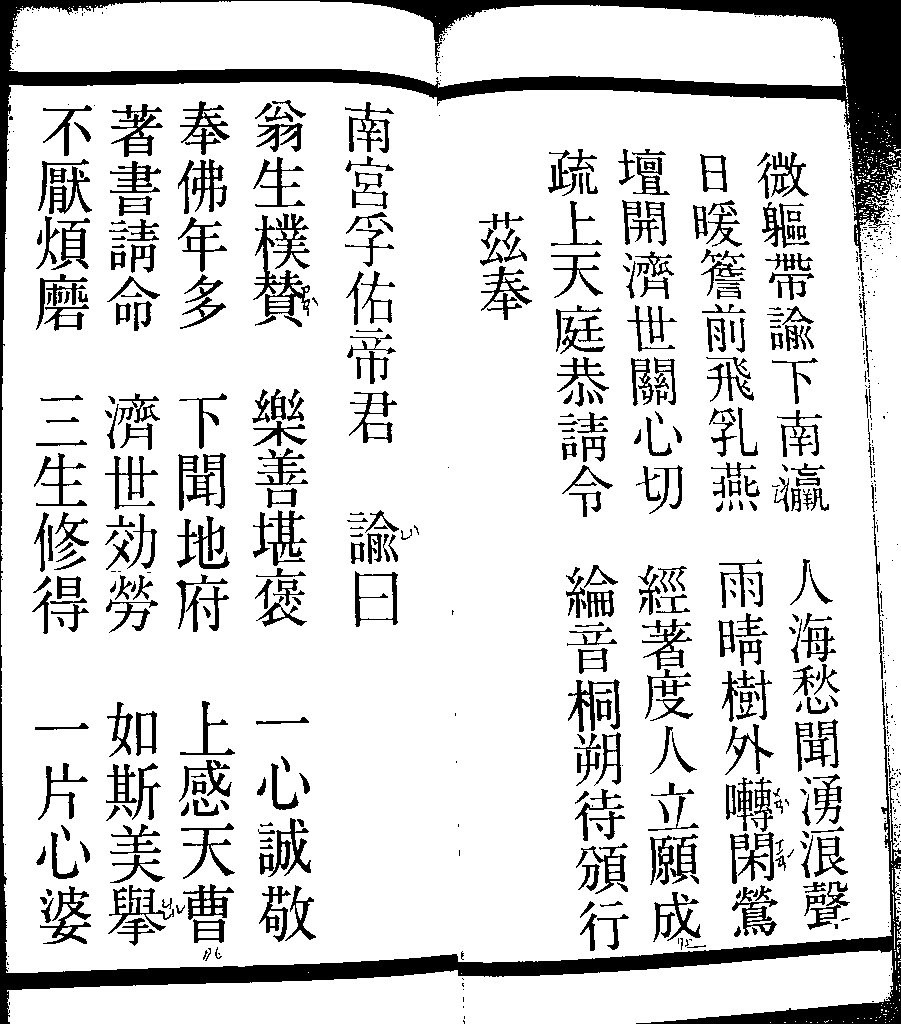 微軀帶諭下南瀛　人海愁聞湧浪聲
日暖簷前飛乳燕　雨晴樹外囀閑鶯
壇開濟世關心切　經著度人立願成
疏上天庭恭請令　綸音桐朔待頒行
茲奉
南宮孚佑帝君　諭曰
翁生樸贊　樂善堪褒　一心誠敬
奉佛年多　下聞地府　上感天曹
著書請命　濟世効勞　如斯美舉
不厭煩磨　三生修得　一片心婆